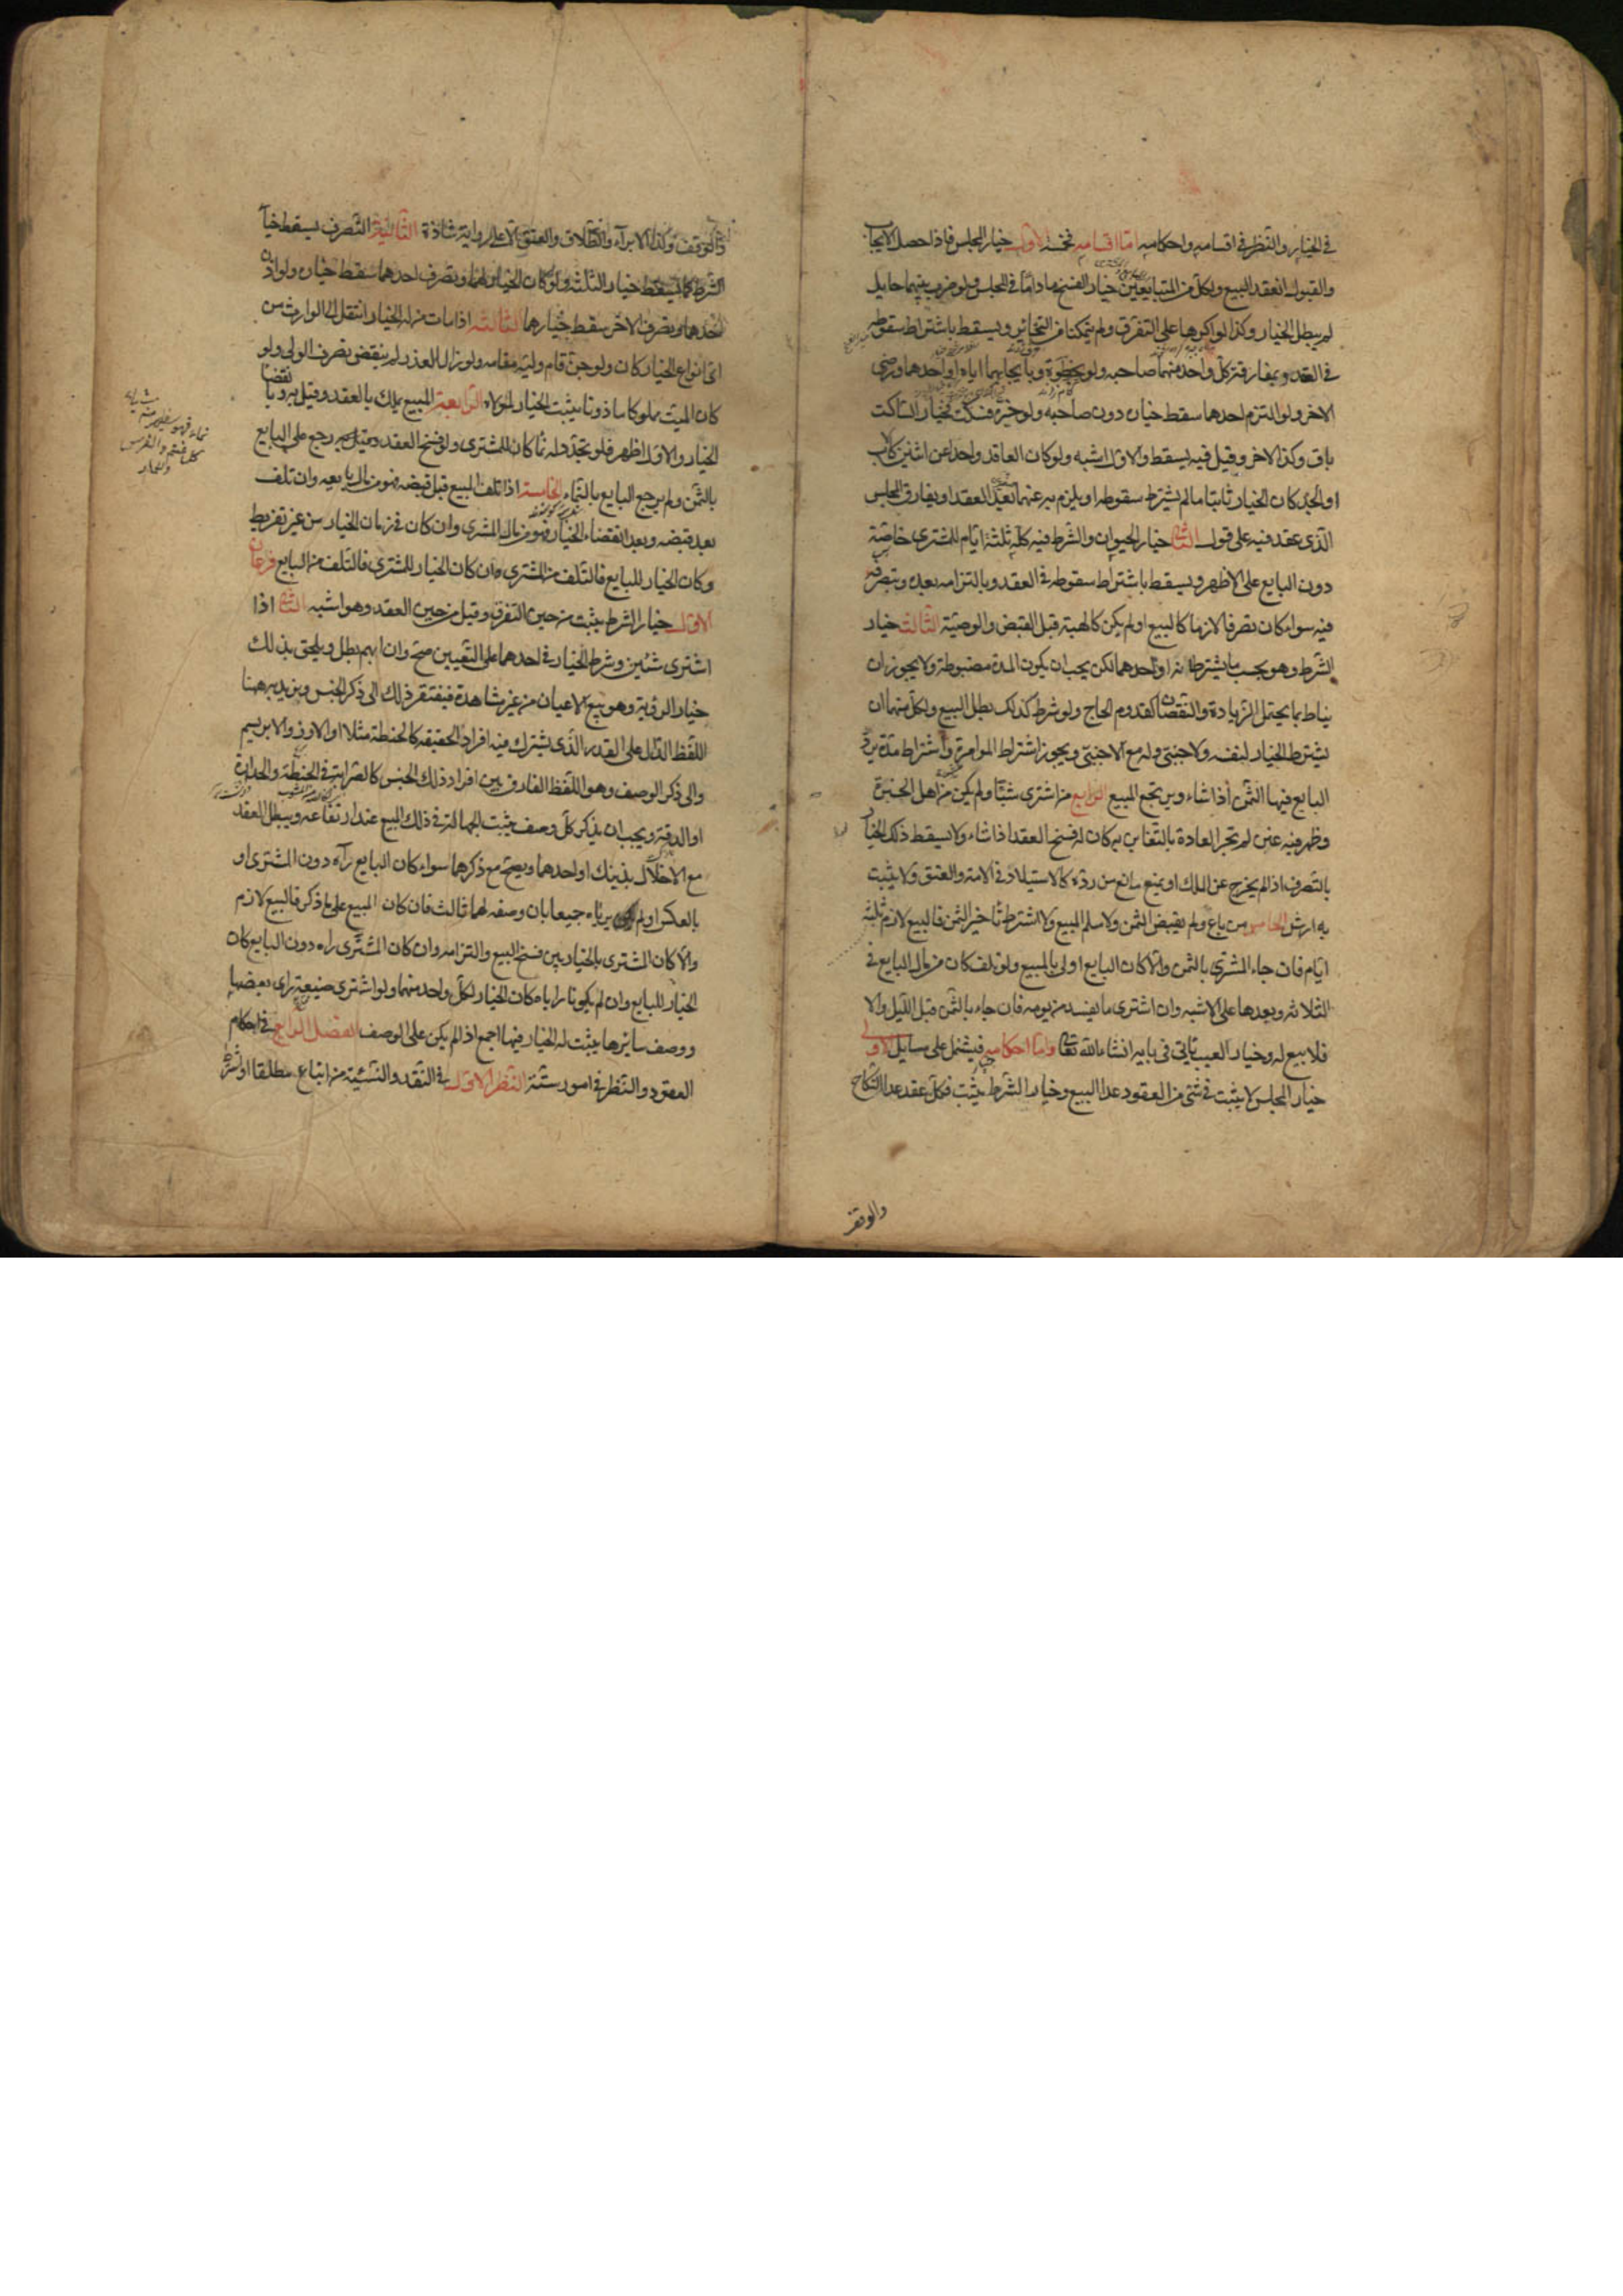 في الخيار والنظر في اقسامه واحكامه اما اقسامه فخمسة الاول خيار المجلس فاذا حصل الايجاب
والقبول انعقد البيع ولكل من المتبايعين خيار الفسخ ما داما في المجلس ولو ضرب بينهما حايل
لم يبطل الخيار وكذا لو اكرها على التفرق ولم يتمكنا من التخاير ويسقط باشتراط سقوطه
في العقد وبمفارقة كل واحد منهما صاحبه ولو بخطوة وبايجابهما اياه او احدهما ورضى
الاخر ولو التزم احدهما سقط خياره دون صاحبه ولو خيره فسكت فخيار الساكت
باق وكذا الاخر وقيل فيه يسقط والاول اشبه ولو كان العاقد واحدا عن اثنين كالاب
او الجد كان الخيار ثابتا ما لم يشترط سقوطه او يلتزم به عنهما بعد العقد او يفارق المجلس
الذى عقد فيه على قول الثانى خيار الحيوان والشرط فيه كله ثلثة ايام للمشترى خاصة
دون البايع على الاظهر ويسقط باشتراط سقوطه في العقد وبالتزامه بعده وبتصرفه
فيه سواء كان تصرفا لازما كالبيع او لم يكن كالهبة قبل القبض والوصية الثالث خيار
الشرط وهو بحسب ما يشترطانه او احدهما لكن يجب ان يكون المدة مضبوطة ولا يجوز ان
يناط بما يحتمل الزيادة والنقصان كقدوم الحاج ولو شرط كذلك بطل البيع ولكل منهما ان
يشترط الخيار لنفسه ولاجنبى وله مع الاجنبى ويجوز اشتراط المؤامرة واشتراط مدة يرد
البايع فيها الثمن اذا شاء ويرتجع المبيع الرابع من اشترى شيئا ولم يكن من اهل الخبرة
وظهر فيه غبن لم تجر العادة بالتغابن به كان له فسخ العقد اذا شاء ولا يسقط ذلك الخيار
بالتصرف اذا لم يخرج عن الملك او يمنع مانع من رده كالاستيلاد في الامة والعتق ولا يثبت
به ارش الخامس من باع ولم يقبض الثمن ولا سلم المبيع ولا اشترط تاخير الثمن فالبيع لازم ثلثة
ايام فان جاء المشترى بالثمن والا كان البايع اولى بالمبيع ولو تلف كان من مال البايع في
الثلاثة وبعدها على الاشبه وان اشترى ما يفسد من يومه فان جاء بالثمن قبل الليل والا
فلا بيع له وخيار العيب ياتى في بابه انشاء الله تعالى واما احكامه فيشتمل على مسايل الاولى
خيار المجلس لا يثبت في شئ من العقود عدا البيع وخيار الشرط يثبت في كل عقد عدا النكاح
والوقف
والوقف وكذا الابراء والطلاق والعتق الا على رواية شاذة الثانية التصرف يسقط خيار
الشرط كما يسقط خيار الثلثة ولو كان الخيار لهما وتصرف احدهما سقط خياره ولو اذن
احدهما وتصرف الاخر سقط خيارهما الثالثة اذا مات من له الخيار انتقل الى الوارث من
اى انواع الخيار كان ولو جن قام وليه مقامه ولو زال العذر لم ينقض تصرف الولى ولو
كان الميت مملوكا ماذونا يثبت الخيار لمولاه الرابعة المبيع يملك بالعقد وقيل به وبانقضاء
الخيار والاول اظهر فلو تجدد له نماء كان للمشترى ولو فسخ العقد رجع على البايع
بالثمن ولم يرجع البايع بالنماء الخامسة اذا تلف المبيع قبل قبضه فهو من مال بايعه وان تلف
بعد قبضه وبعد انقضاء الخيار فهو من مال المشترى وان كان في زمان الخيار من غير تفريط
وكان الخيار للبايع فالتلف من المشترى وان كان الخيار للمشترى فالتلف من البايع فرعان
الاول خيار الشرط يثبت من حين التفرق وقيل من حين العقد وهو اشبه الثانى اذا
اشترى شئين وشرط الخيار في احدهما على التعيين صح وان ابهم بطل ويلحق بذلك
خيار الرؤية وهو بيع الاعيان من غير مشاهدة فيفتقر ذلك الى ذكر الجنس ونريد به هنا
اللفظ الدال على القدر الذى يشترك فيه افراد الحقيقة كالحنطة مثلا او الارز والابريسم
والى ذكر الوصف وهو اللفظ الفارق بين افراد ذلك الجنس كالصرابة في الحنطة والحدارة
او الدقة ويجب ان يذكر كل وصف يثبت الجهالة في ذلك البيع عند ارتفاعه ويبطل العقد
مع الاخلال بذينك او احدهما ويصح مع ذكرهما سواء كان البايع رآه دون المشترى او
بالعكس او لم يرياه جميعا بان وصفه لهما ثالث فان كان المبيع على ما ذكر فالبيع لازم
والا كان المشترى بالخيار بين فسخ البيع والتزامه وان كان المشترى راه دون البايع كان
الخيار للبايع وان لم يكونا راياه كان الخيار لكل واحد منهما ولو اشترى ضيعة راى بعضها
ووصف سايرها يثبت له الخيار فيها اجمع اذا لم يكن على الوصف الفصل الرابع في احكام
العقود والنظر في امور ستة النظر الاول في النقد والنسئية من ابتاع مطلقا او شرط